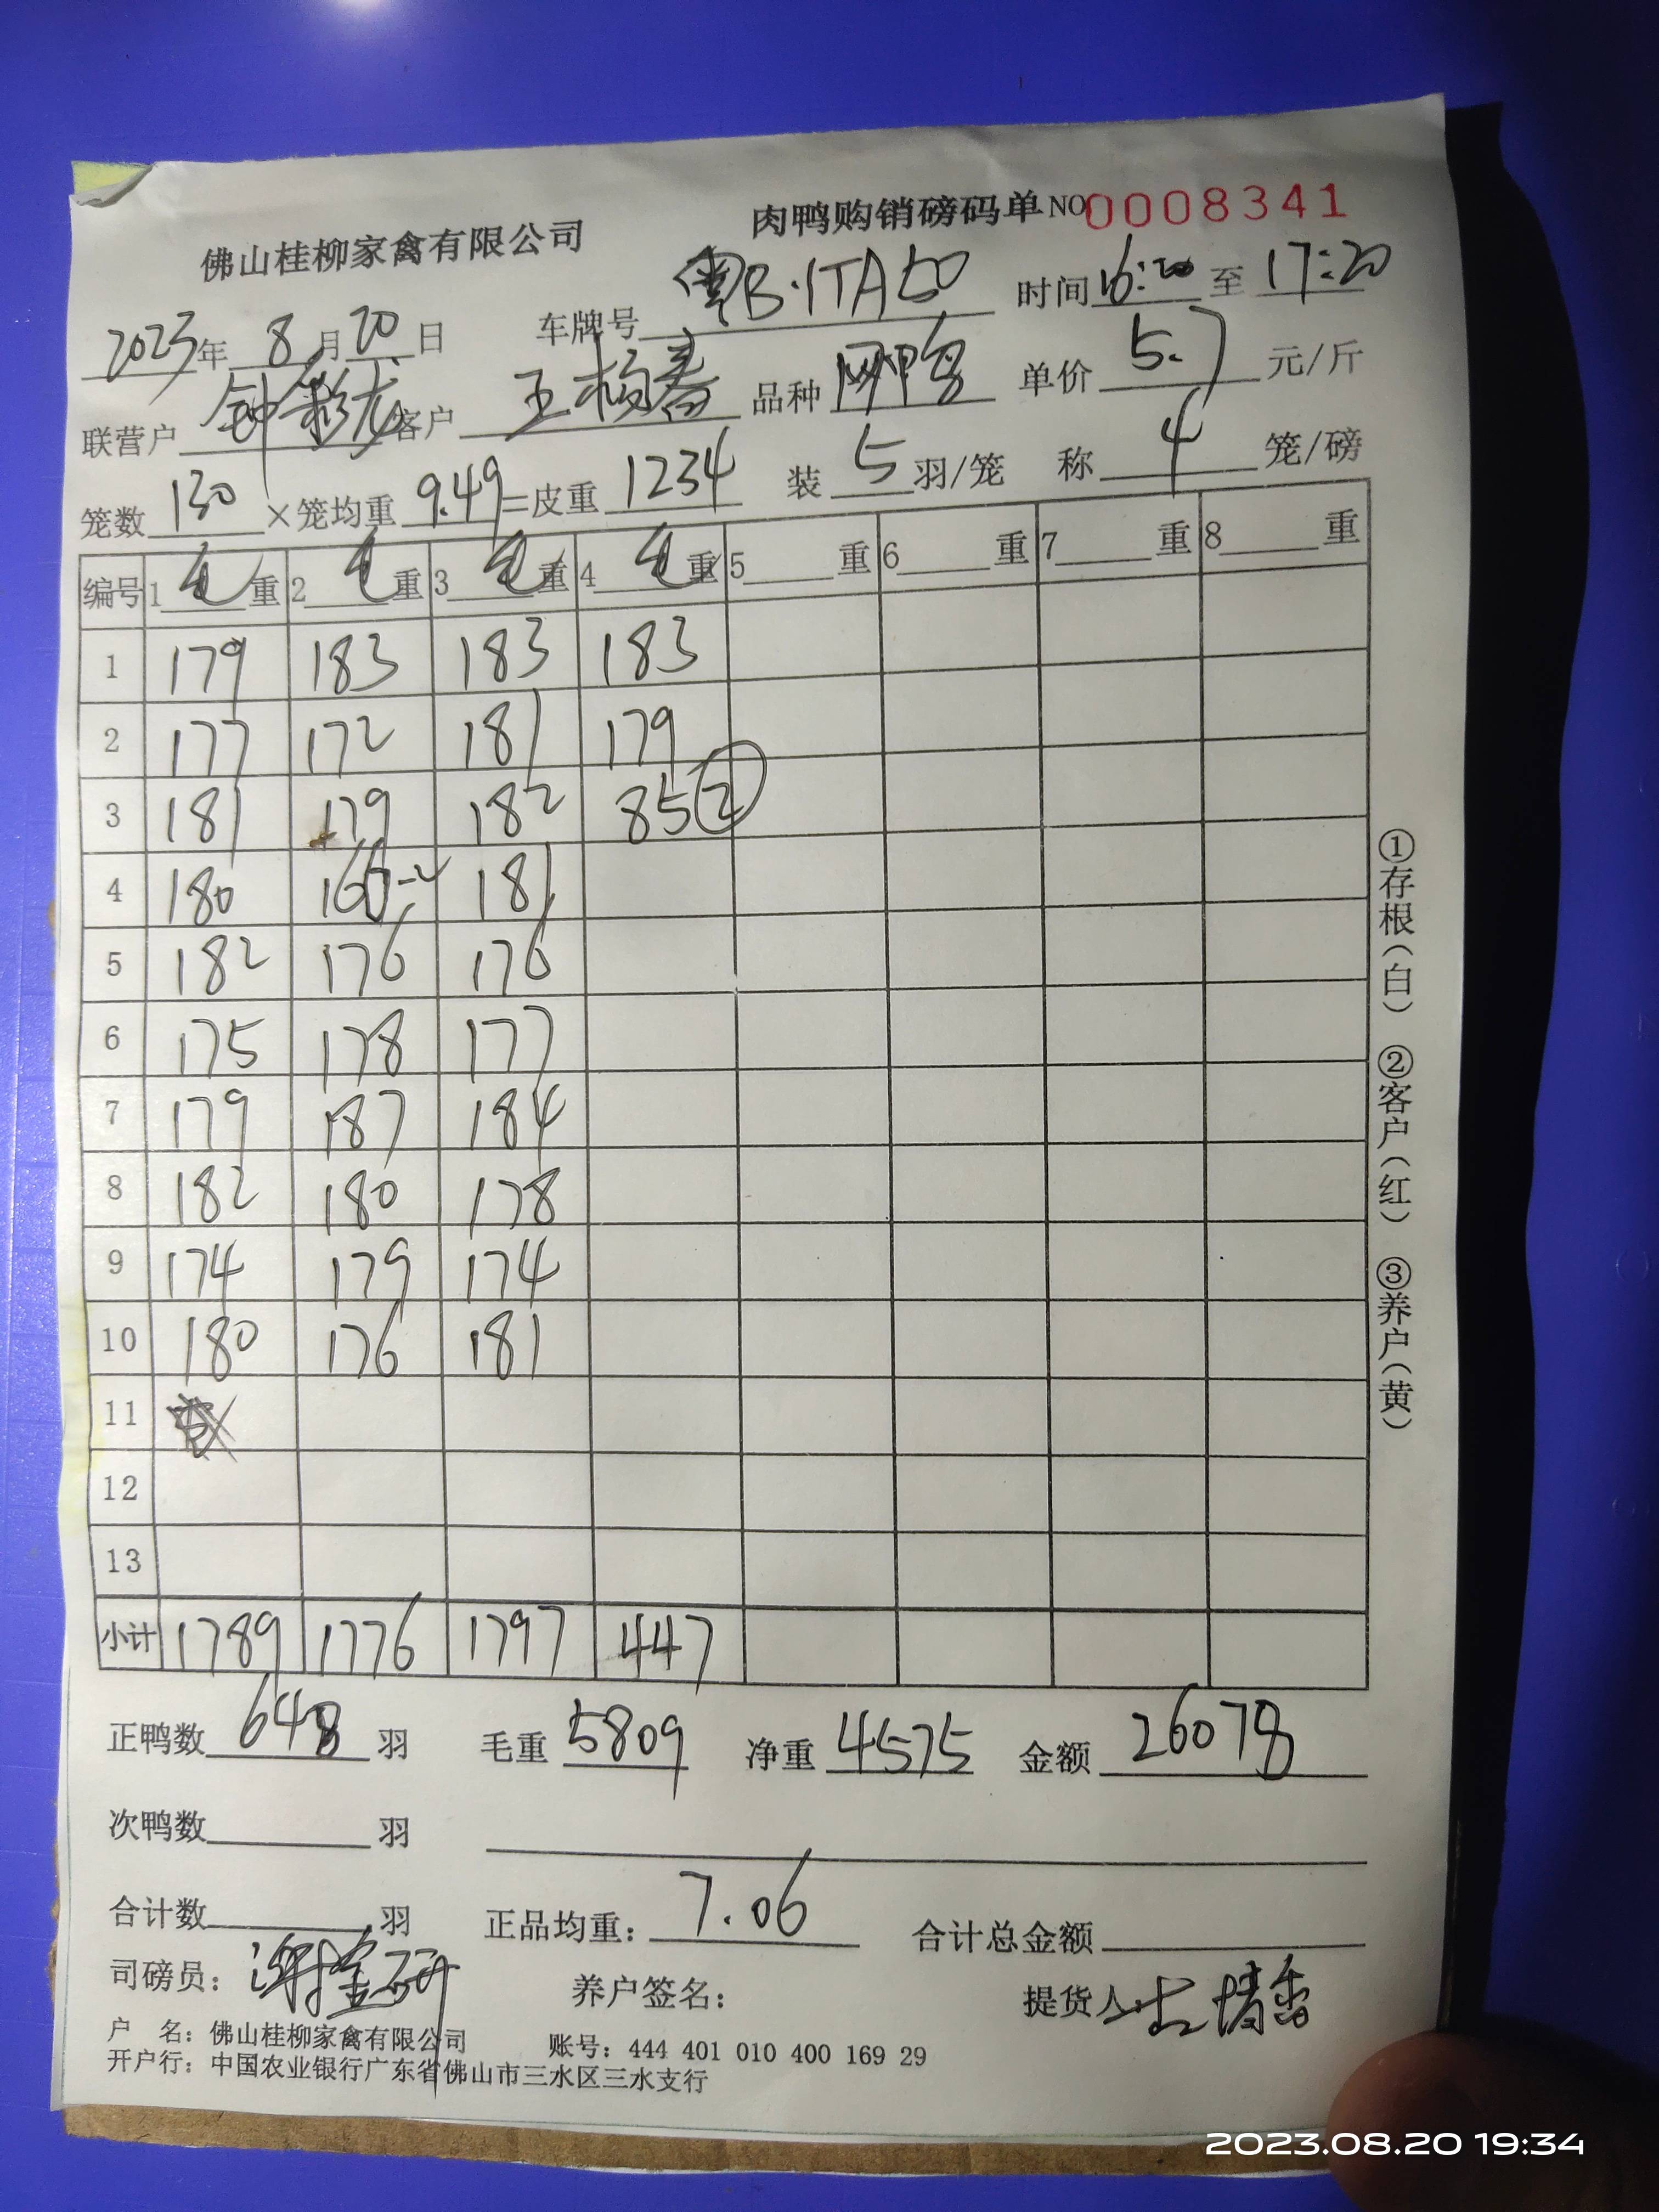 佛山桂柳家禽有限公司 肉鸭购销磅码单 NO 0008341
2023年 8月20日 车牌号 粤B·1TA50 时间 16:20 至 17:20
联营户 钟彩龙 客户 王 春 品种 鸭 单价 5.7 元/斤
笼数 130 ×笼均重 9.49 =皮重 1234 装 5 羽/笼 称 4 笼/磅
编号 1 毛 重 2 毛 重 3 毛 重 4 毛 重 5 重 6 重 7 重 8 重
1 179 183 183 183
2 177 172 181 179
3 181 179 182 85 ②
4 180 166-2 181
5 182 176 176
6 175 178 177
7 179 187 184
8 182 180 178
9 174 179 174
10 180 176 181
11
12
13
小计 1789 1776 1797 447
正鸭数 648 羽 毛重 5809 净重 4575 金额 26078
次鸭数 羽
合计数 羽 正品均重: 7.06 合计总金额
司磅员: 养户签名: 提货人:
户 名: 佛山桂柳家禽有限公司 账号: 444 401 010 400 169 29
开户行: 中国农业银行广东省佛山市三水区三水支行
①存根(白) ②客户(红) ③养户(黄)
2023.08.20 19:34